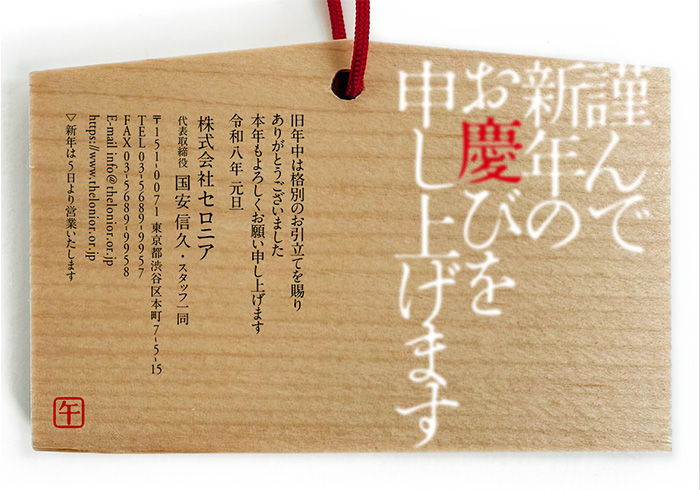 謹んで
新年の
お慶びを
申し上げます
旧年中は格別のお引立てを賜り
ありがとうございました
本年もよろしくお願い申し上げます
令和八年 元旦
株式会社セロニア
代表取締役 国安 信久・スタッフ一同
〒151-0071 東京都渋谷区本町7-5-15
TEL 03-5689-9957
FAX 03-5689-9958
E-mail info@thelonior.or.jp
https://www.thelonior.or.jp
▽新年は5日より営業いたします
午